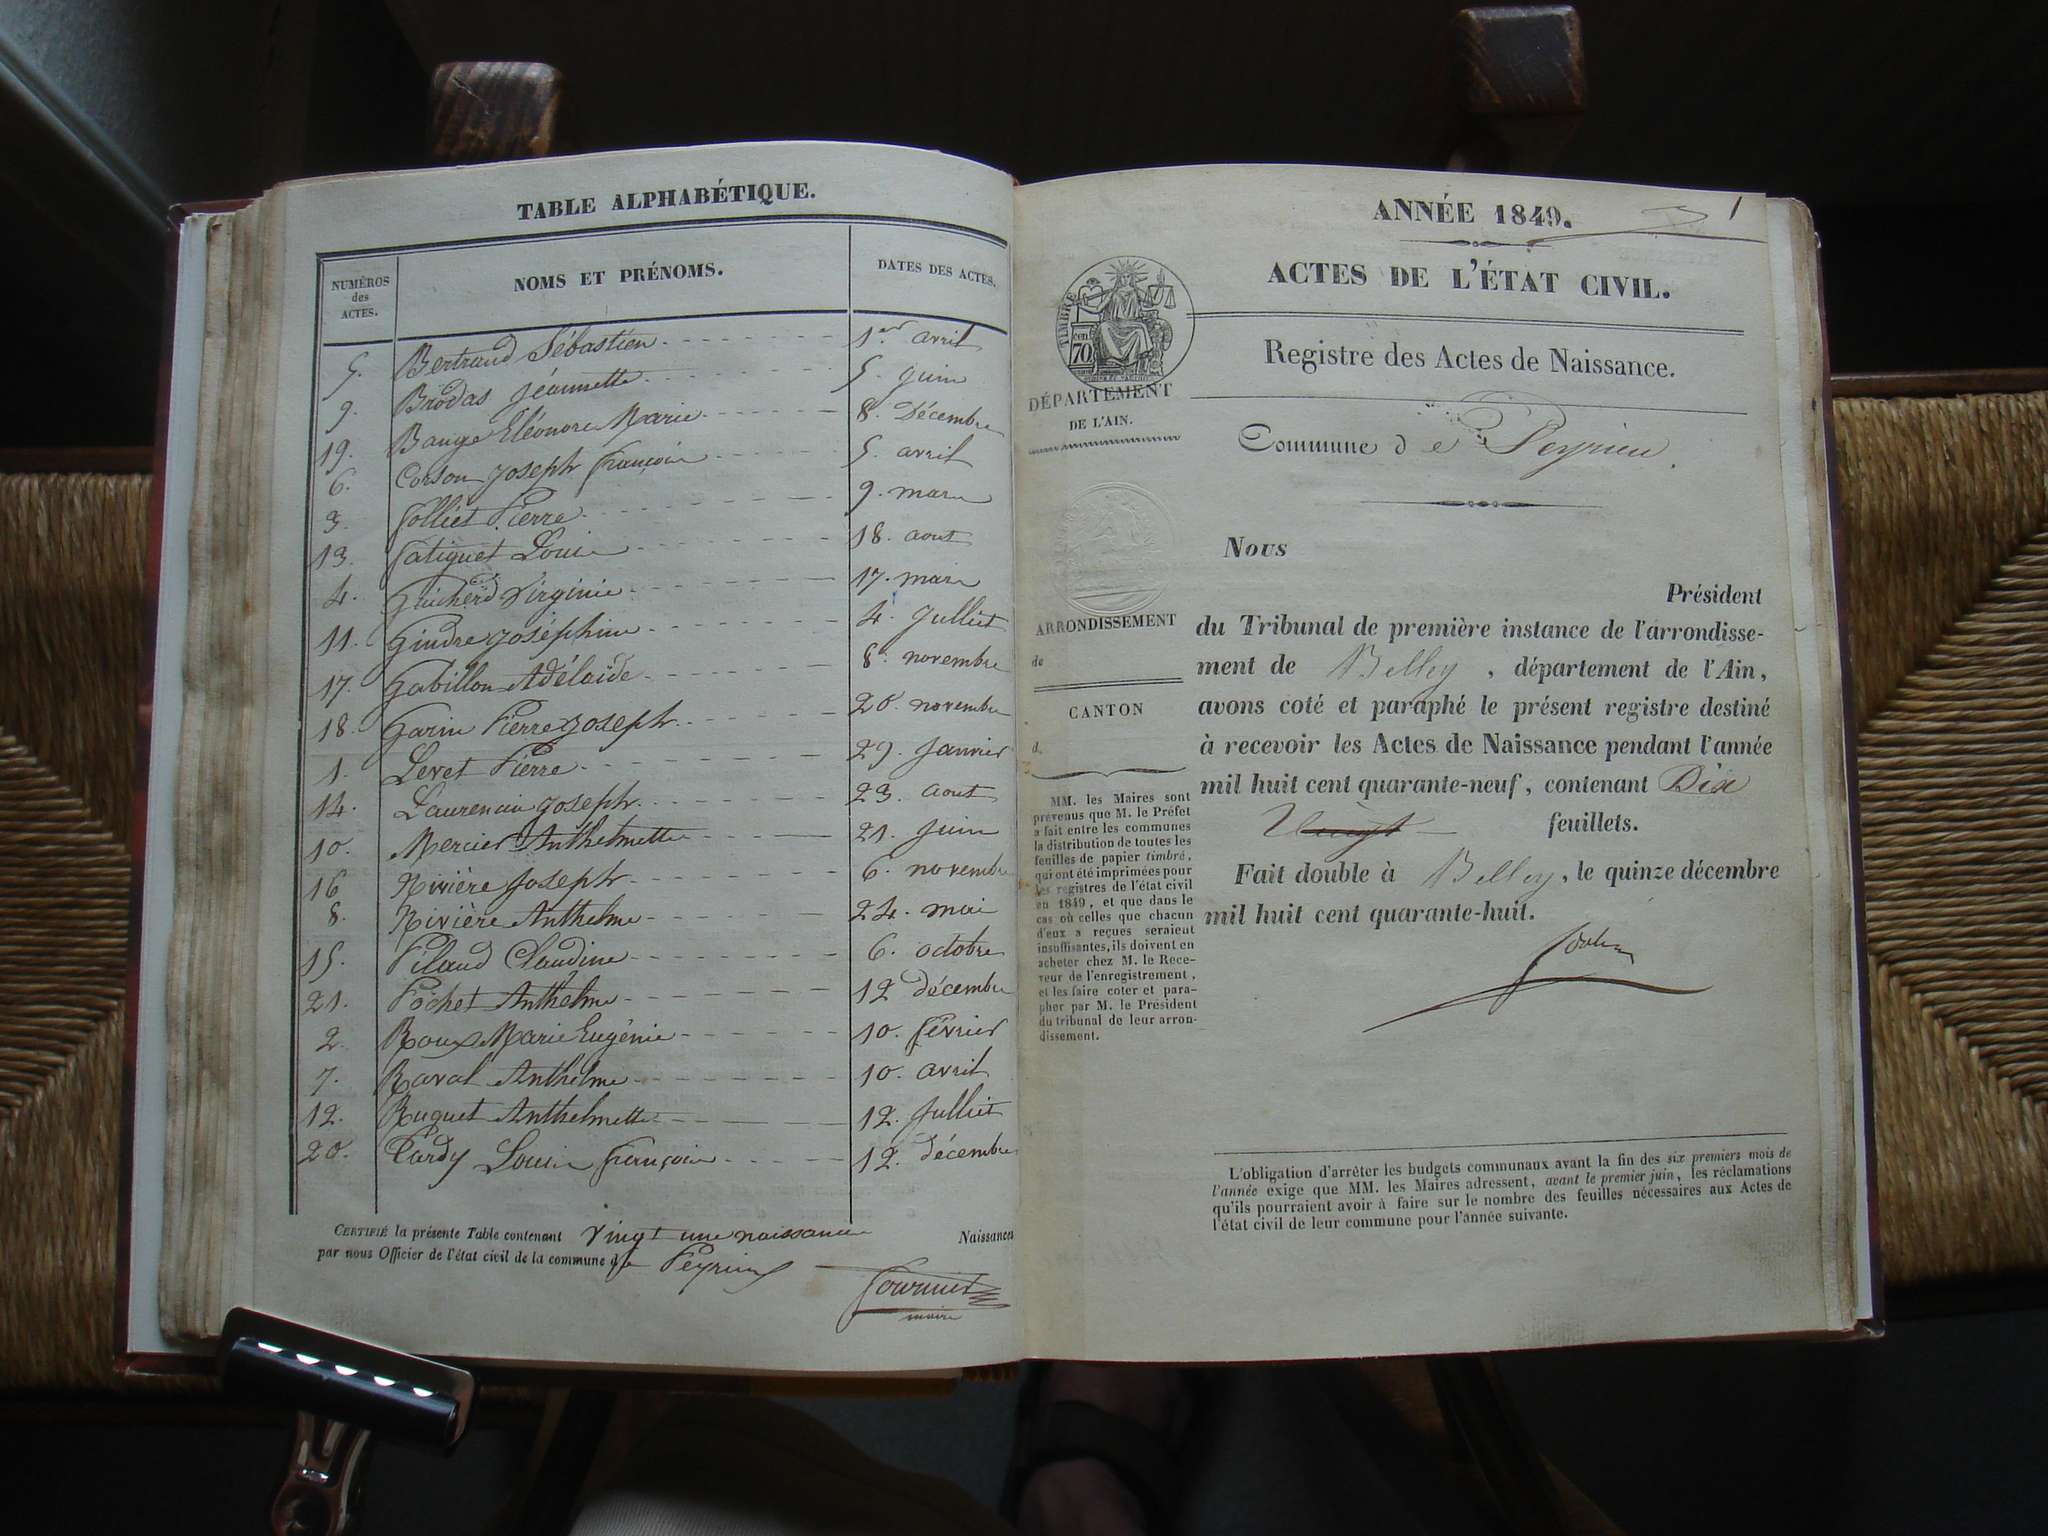 TABLE ALPHABÉTIQUE.
NUMÉROS des ACTES. NOMS ET PRÉNOMS. DATES DES ACTES.
5. Bertrand Sébastien 1er avril
9. Brodas Jeannette 5. Juin
19. Bauge Eléonore Marie 8. Décembre
6. Corson Joseph françois 5. avril
3. Folliet Pierre 9. mars
13. Fatiguet Louis 18. aout
4. Guicherd Virginie 17. mars
11. Gindre Joséphine 4. Julliet
17. Gabillon Adélaïde 8. novembre
18. Garin Pierre Joseph 20. novembre
1. Levet Pierre 29. Janvier
14. Laurencin Joseph 23. aout
10. Mercier Anthelmette 21. Juin
16 Nivière Joseph 6. novembre
8. Nivière Anthelme 24. mai
15. Pilaud Claudine 6. octobre
21. Pochet Anthelme 12 décembre
2. Roux Marie Eugénie 10. février
7. Raval Anthelme 10. avril
12. Ruguet Anthelmette 12. Julliet
20. Tardy Louis françois 12. décembre
CERTIFIÉ la présente Table contenant vingt une naissances Naissances
par nous Officier de l'état civil de la commune de Peyrieu
maire
1
ANNÉE 1849.
ACTES DE L'ÉTAT CIVIL.
TIMBRE
70
Registre des Actes de Naissance.
DÉPARTEMENT
DE L'AIN.
Commune de Peyrieu.
ARRONDISSEMENT
de
CANTON
d
MM. les Maires sont
prévenus que M. le Préfet
a fait entre les communes
la distribution de toutes les
feuilles de papier timbré,
qui ont été imprimées pour
les registres de l'état civil
en 1849, et que dans le
cas où celles que chacun
d'eux a reçues seraient
insuffisantes, ils doivent en
acheter chez M. le Rece-
veur de l'enregistrement,
et les faire coter et para-
pher par M. le Président
du tribunal de leur arron-
dissement.
Nous
Président
du Tribunal de première instance de l'arrondisse-
ment de Belley, département de l'Ain,
avons coté et paraphé le présent registre destiné
à recevoir les Actes de Naissance pendant l'année
mil huit cent quarante-neuf, contenant Dix
Vingt feuillets.
Fait double à Belley, le quinze décembre
mil huit cent quarante-huit.
L'obligation d'arrêter les budgets communaux avant la fin des six premiers mois de
l'année exige que MM. les Maires adressent, avant le premier juin, les réclamations
qu'ils pourraient avoir à faire sur le nombre des feuilles nécessaires aux Actes de
l'état civil de leur commune pour l'année suivante.